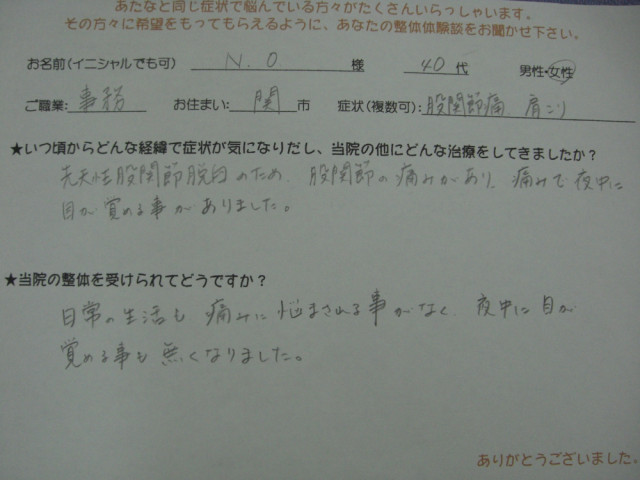 あなたと同じ症状で悩んでいる方々がたくさんいらっしゃいます。
その方々に希望をもってもらえるように、あなたの整体体験談をお聞かせ下さい。
お名前(イニシャルでも可) N.O 様 40代 男性・女性
ご職業: 事務 お住まい: 関 市 症状(複数可): 股関節痛、肩こり
★いつ頃からどんな経緯で症状が気になりだし、当院の他にどんな治療をしてきましたか?
先天性股関節脱臼のため、股関節の痛みがあり、痛みで夜中に
目が覚める事がありました。
★当院の整体を受けられてどうですか?
日常の生活も痛みに悩まされる事がなく、夜中に目が
覚める事も無くなりました。
ありがとうございました。